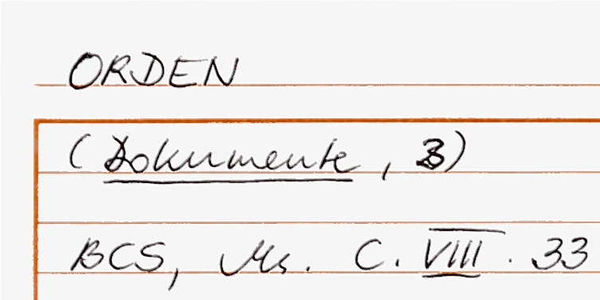 ORDEN
(Dokumente, 3)
BCS, Ms. C. VIII. 33